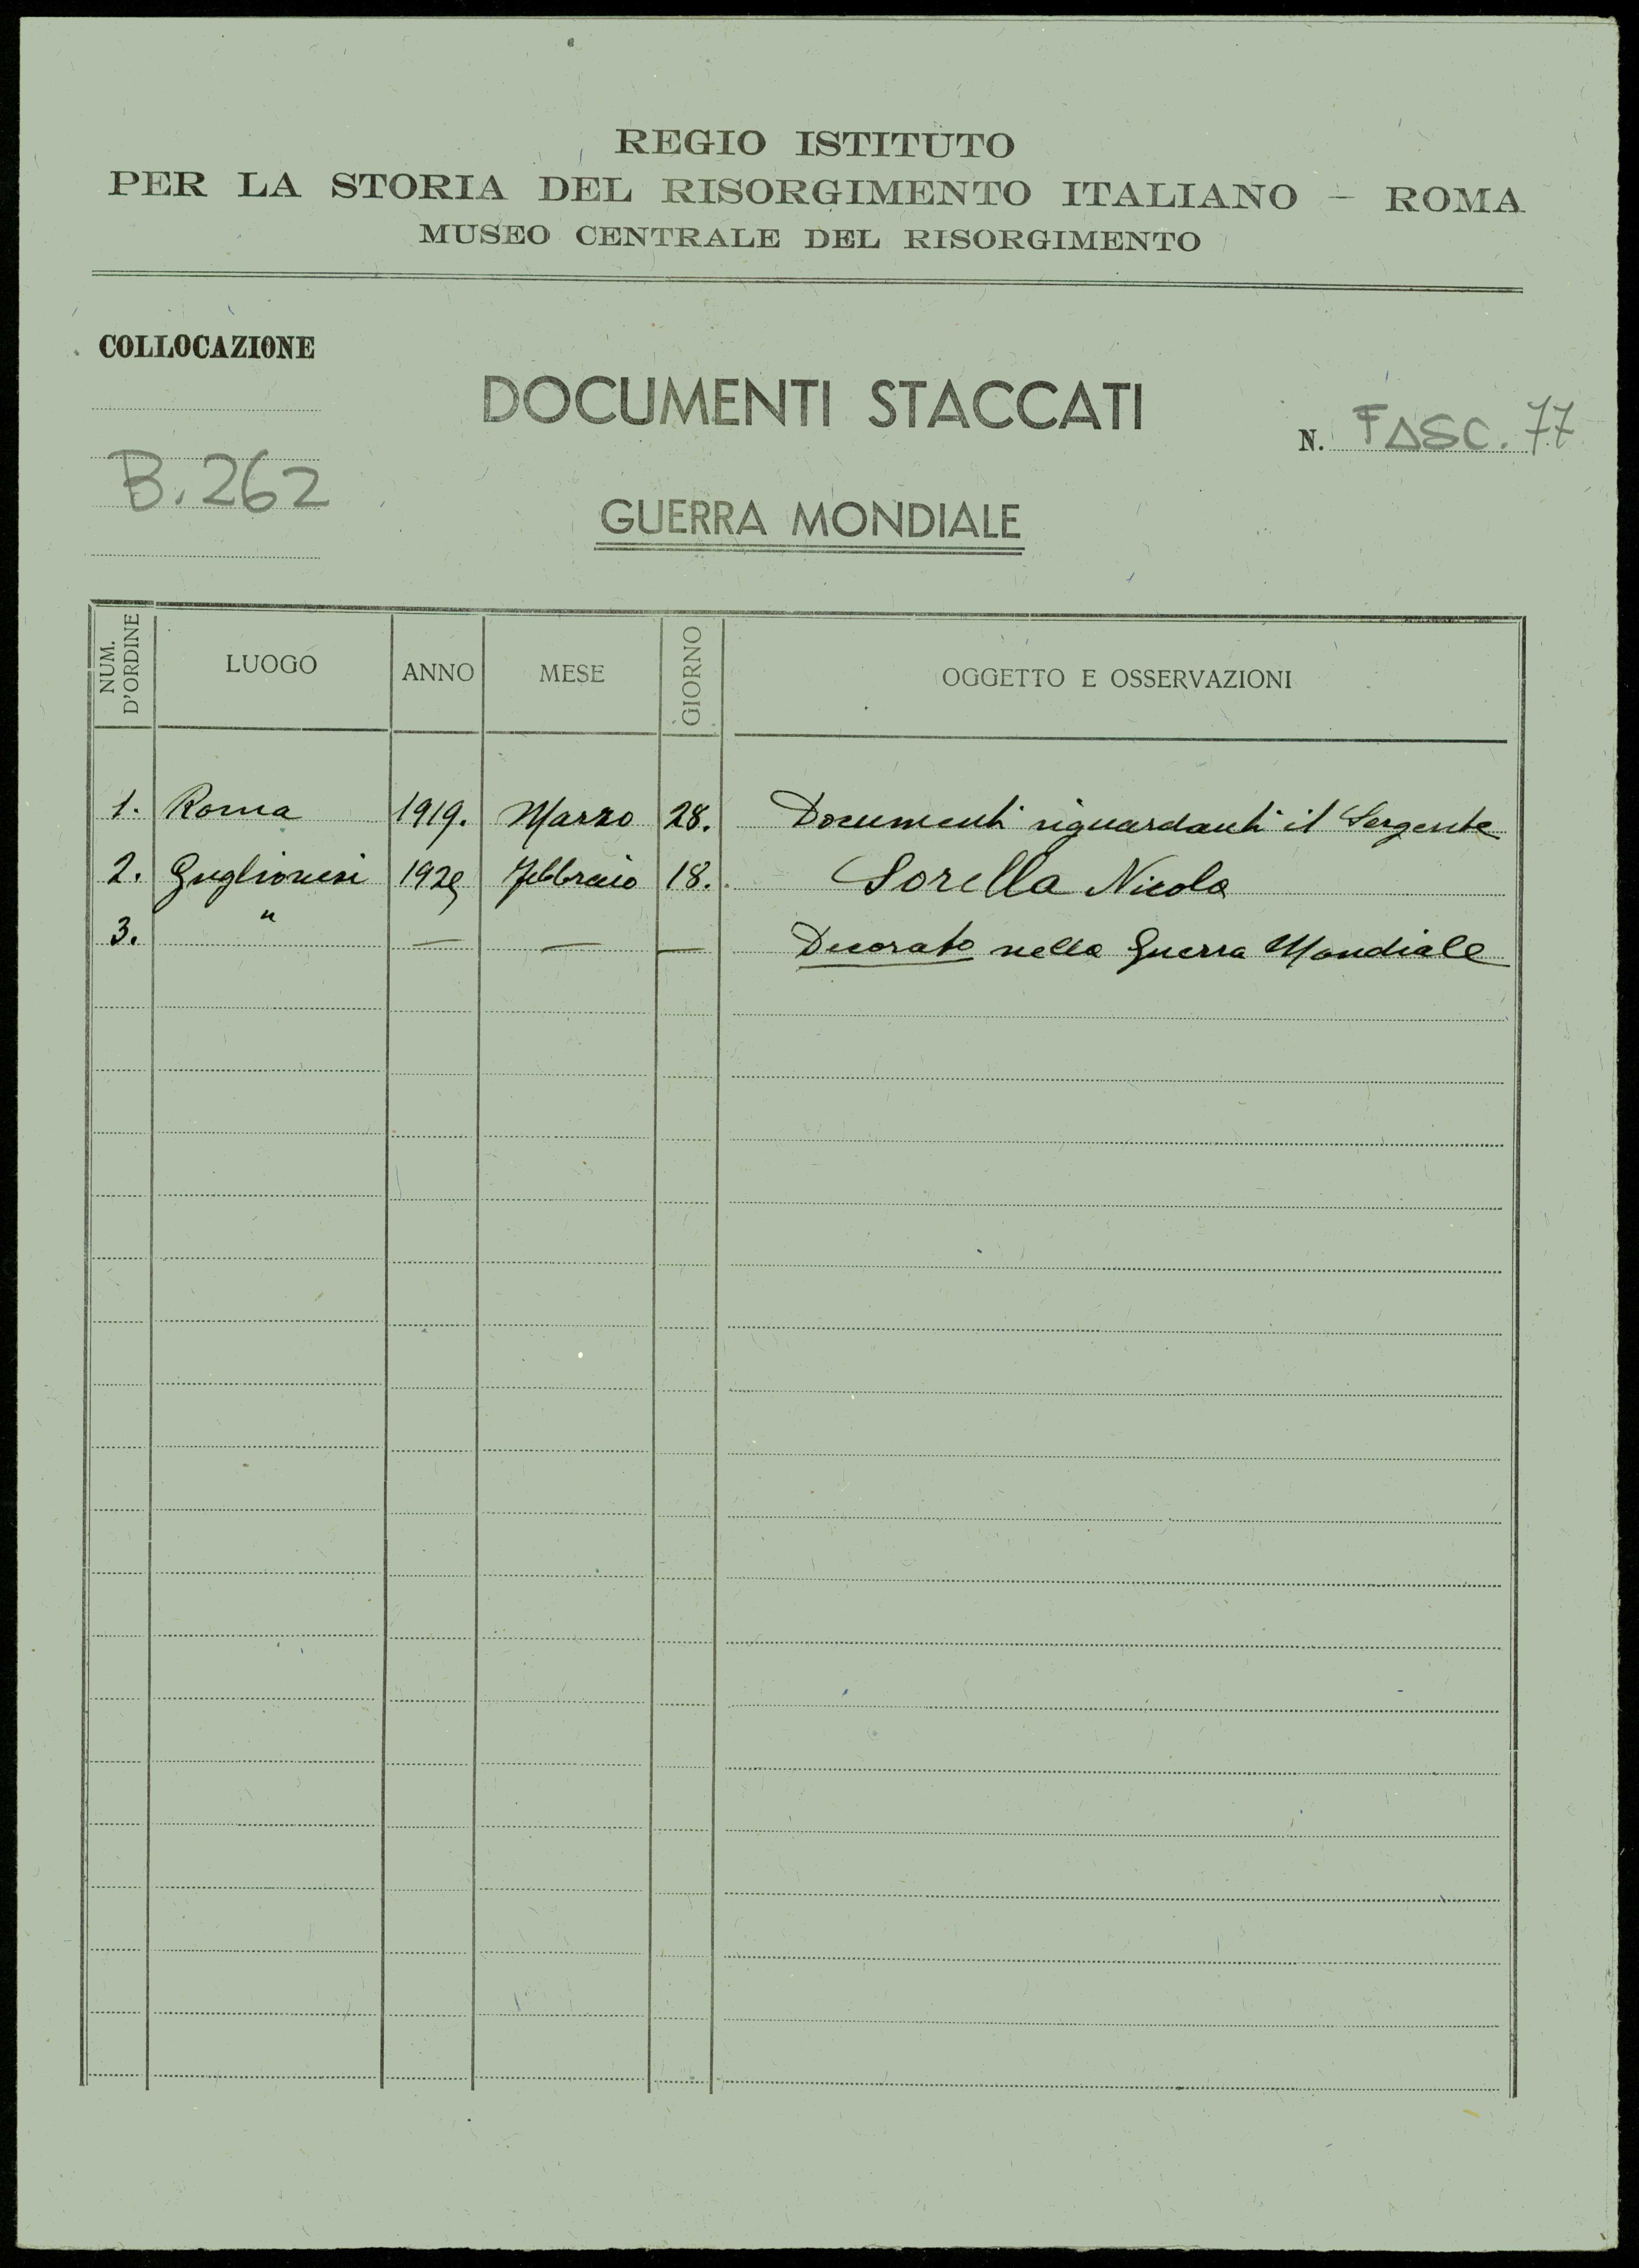 REGIO ISTITUTO
PER LA STORIA DEL RISORGIMENTO ITALIANO - ROMA
MUSEO CENTRALE DEL RISORGIMENTO
COLLOCAZIONE
DOCUMENTI STACCATI
N. FASC. 77
B. 262
GUERRA MONDIALE
NUM. D'ORDINE LUOGO ANNO MESE GIORNO OGGETTO E OSSERVAZIONI
1. Roma 1919. Marzo 28. Documenti riguardanti il Sergente
2. Guglionesi 1929 Febbraio 18. Sorella Nicola
3. " — — — Decorato nella Guerra Mondiale